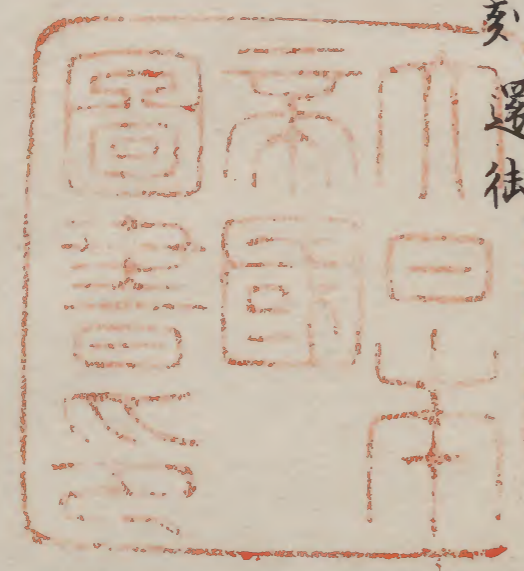 刻還
大日本
帝國
圖書印